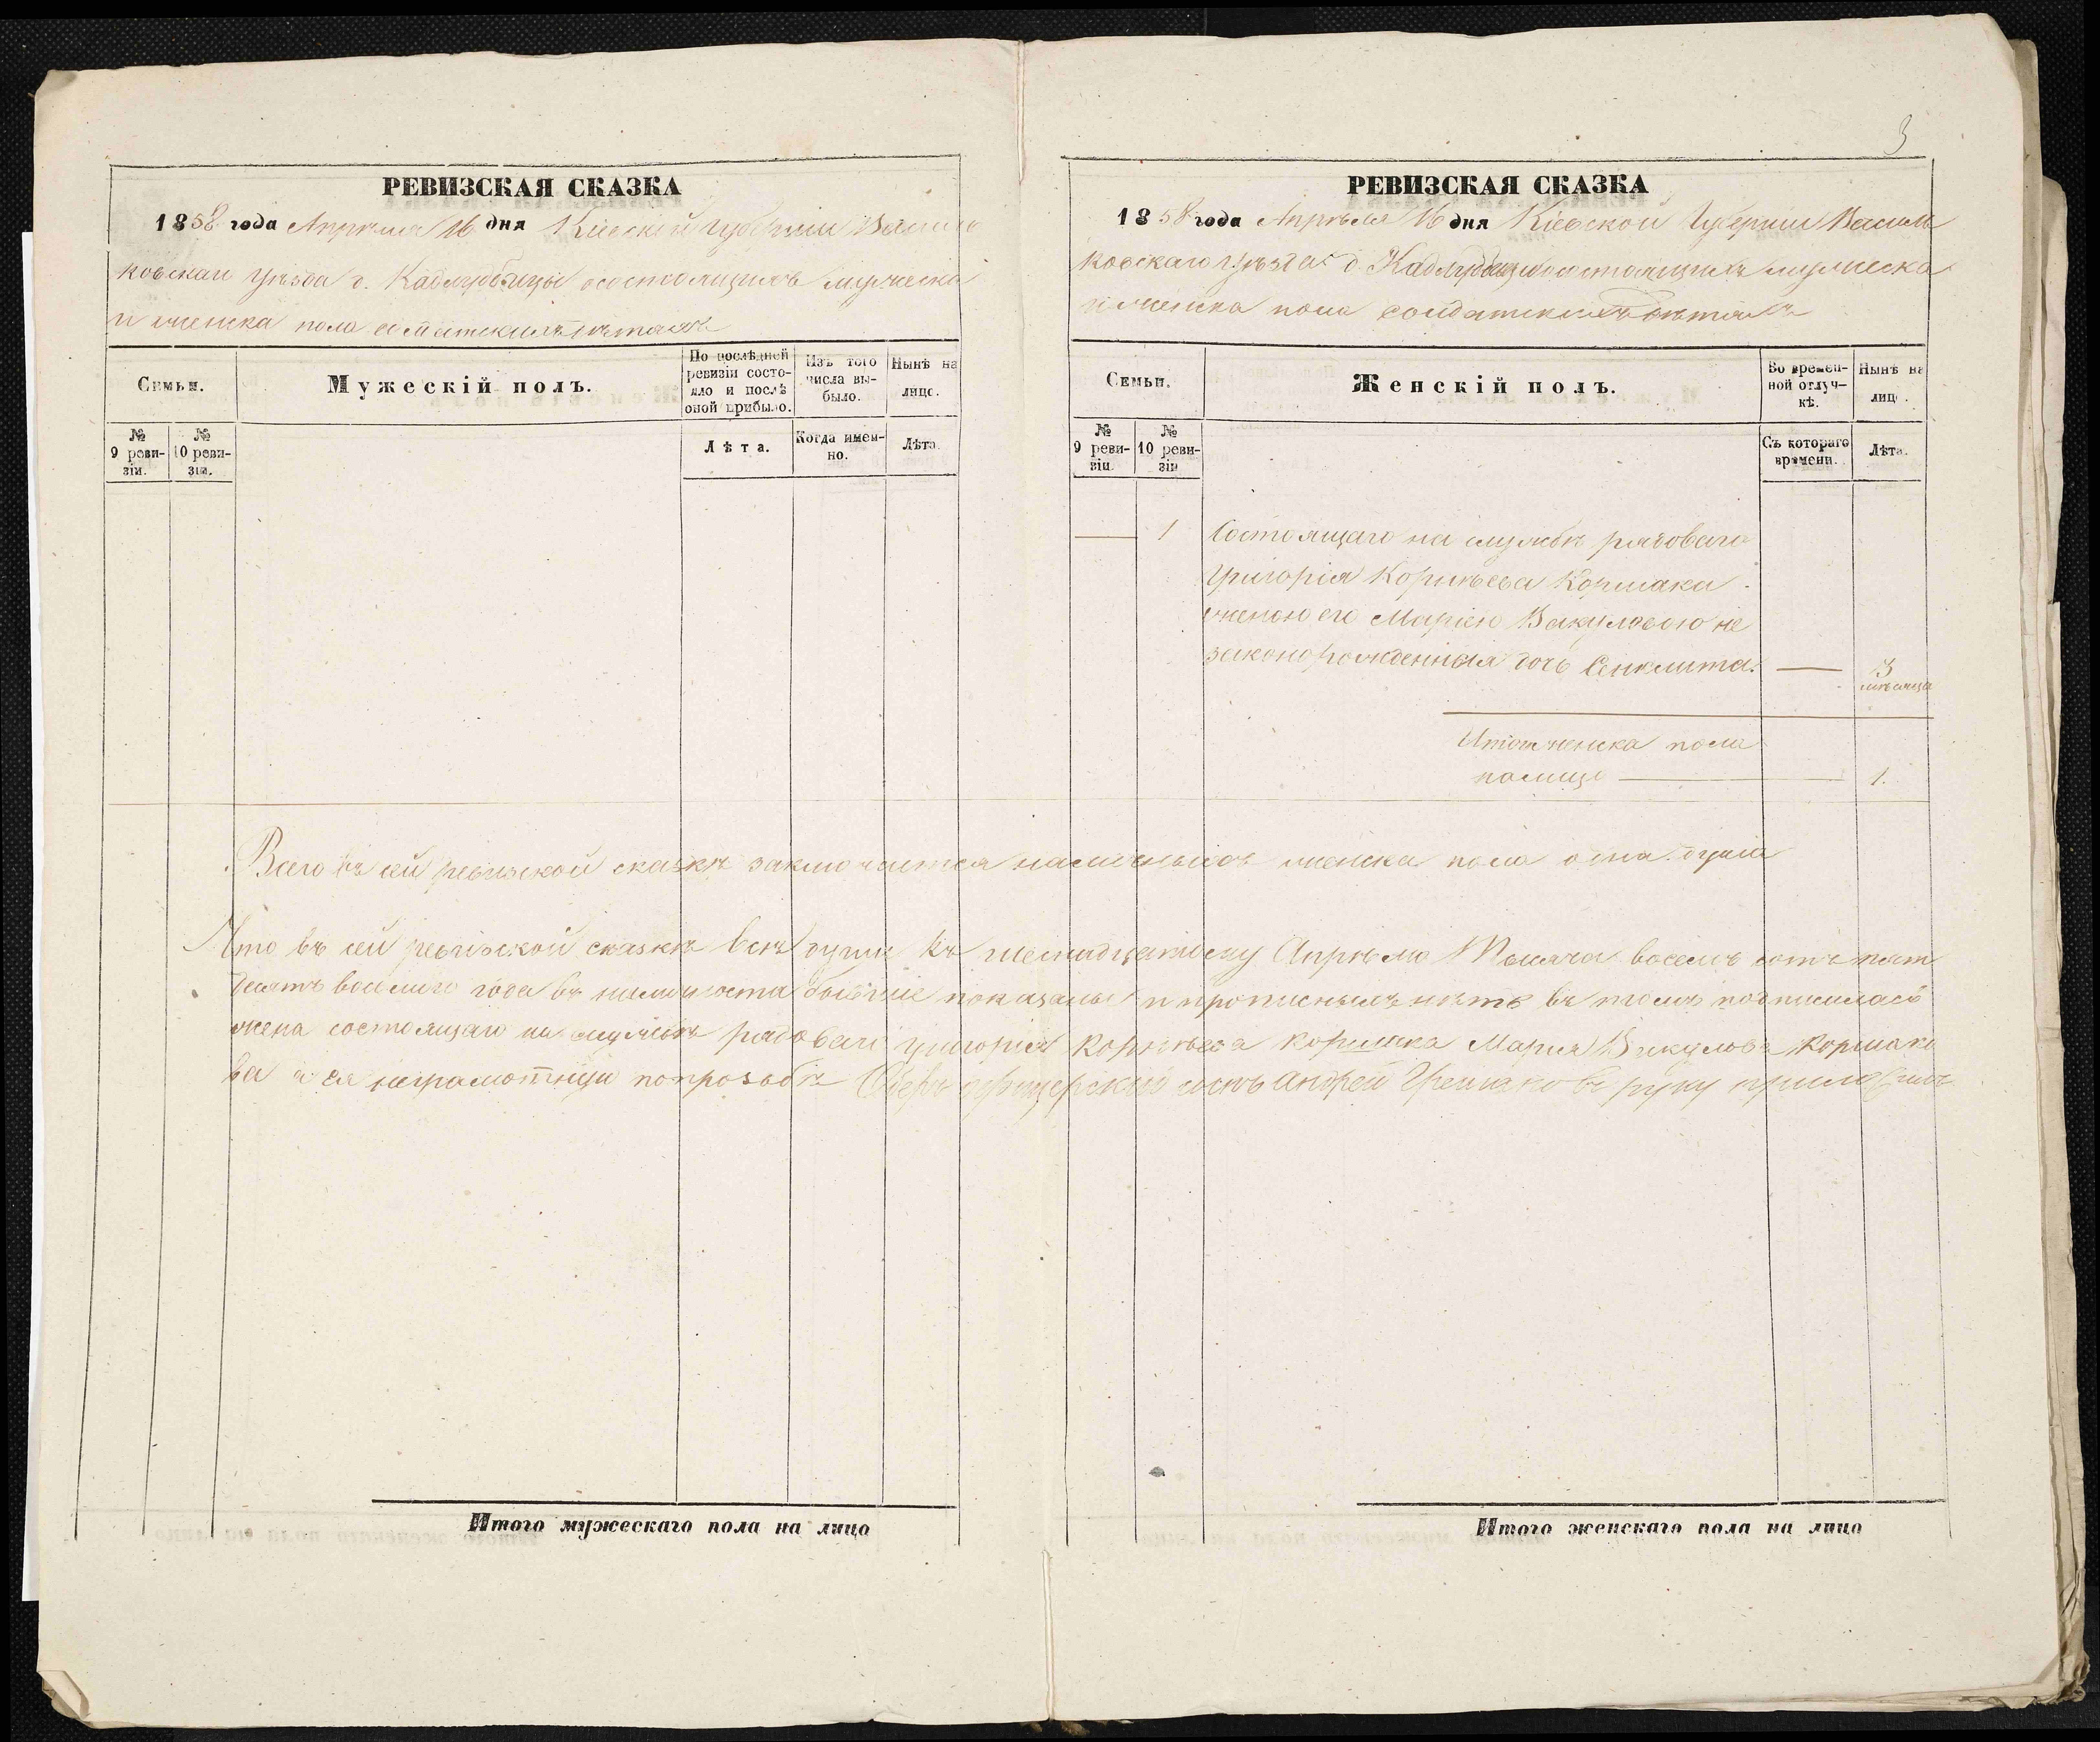 РЕВИЗСКАЯ СКАЗКА
1858 года Апреля 16 дня Кіевской губерніи Василь
ковскаго уѣзда д. Кадлубицы о состоящихъ мужеска
и женска пола солдатскихъ дѣтяхъ
Семьи.
Мужескій полъ.
По послѣдней ревизіи состояло и послѣ оной прибыло.
Изъ того числа выбыло.
Нынѣ на лицо.
№ 9 ревизіи.
№ 10 ревизіи.
Лѣта.
Когда именно.
Лѣта.
3
РЕВИЗСКАЯ СКАЗКА
1858 года Апрѣля 16 дня Кіевской Губерніи Василь
ковскаго уѣзда д. Кадлубицы о состоящихъ мужеска
и женска пола солдатскихъ дѣтяхъ
Семьи.
Женскій полъ.
Во временной отлучкѣ.
Нынѣ на лицо.
№ 9 ревизіи.
№ 10 ревизіи
Съ котораго времени.
Лѣта.
— 1 Состоящаго на службѣ рядоваго
Григорія Корнѣева Коршака
женою его Маріею Вакуловою не
законорожденная дочь Сенклита. — 3
мѣсяца
Итого женска пола
налицо — 1.
Всего въ сей ревизской сказкѣ заключается наличныхъ женска пола одна душа
Что въ сей ревизской сказкѣ всѣ души къ шестнадцатому Апрѣля Тысяча восемь сотъ пят
десятъ восьмаго года въ наличности бывшіе показаны и прописныхъ нѣтъ въ томъ подписалась
жена состоящаго на службѣ рядоваго Григорія Корнѣева Коршака Марія Вакулова Коршако
ва а ея неграмотную по прозьбѣ Оберъ офицерскій сынъ Андрей руку приложилъ
Итого мужескаго пола на лицо
Итого женскаго пола на лицо